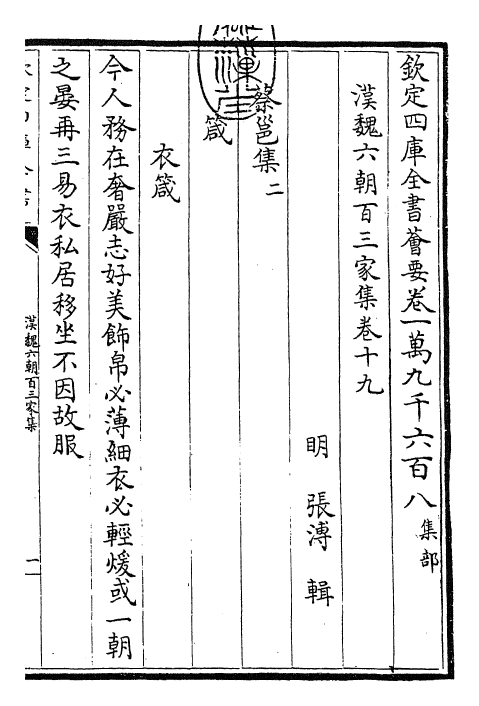 欽定四庫全書薈要卷一萬九千六百八 集部
漢魏六朝百三家集卷十九
明 張溥 輯
蔡邕集二
箴
衣箴
今人務在奢嚴志好美飾帛必薄細衣必輕煖或一朝
之晏再三易衣私居移坐不因故服
漢魏六朝百三家集
一